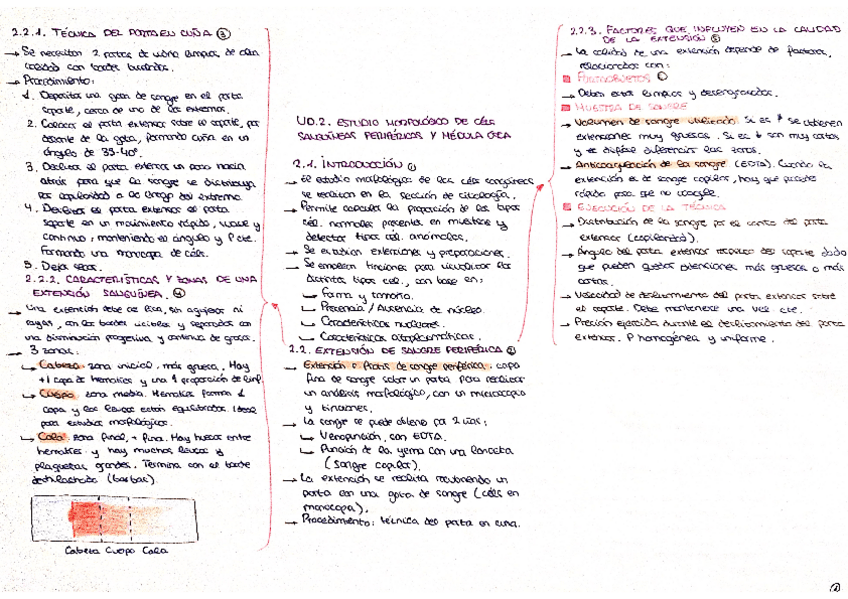 2.2.1. TÉCNICA DEL PORTA EN CUÑA ③
→ Se necesitan 2 portas de vidrio limpios de alta
calidad con bordes
→ Procedimiento:
1. Depositar una gota de sangre en el porta
soporte, cerca de uno de los extremos.
2. Colocar el porta extensor sobre el soporte, por
delante de la gota, formando cuña en un
ángulo de 35-40º.
3. Deslizar el porta extensor un poco hacia
atrás para que la sangre se distribuya
por capilaridad a lo largo del extremo.
4. Deslizar el porta extensor el porta
soporte en un movimiento rápido, suave y
continuo, manteniendo el ángulo y P cte.
Formando una monocapa de céls.
5. Dejar secar.
2.2.2. CARACTERÍSTICAS Y ZONAS DE UNA
EXTENSIÓN SANGUÍNEA. ④
→ Una extensión debe ser lisa, sin agujeros ni
rayas, con los bordes visibles y separados con
una disminución progresiva y continua de grosor.
→ 3 zonas:
↳ Cabeza: zona inicial, más gruesa. Hay
+1 capa de hematíes y una ↑ proporción de linf.
↳ Cuerpo: zona media. Hematíes forma 1
capa y los leucos están equilibrados. Ideal
para estudios morfológicos.
↳ Cola: zona final, + fina. Hay huecos entre
hematíes y hay muchos leucos y
plaquetas grandes. Termina con el borde
deshilachado (barbas).
Cabeza Cuerpo Cola
UD.2. ESTUDIO MORFOLÓGICO DE CÉLS
SANGUÍNEAS PERIFÉRICAS Y MÉDULA ÓSEA
2.1. INTRODUCCIÓN ①
→ El estudio morfológico de las céls sanguíneas
se realizan en la sección de citología.
→ Permite calcular la proporción de los tipos
cél. normales presentes en muestras y
detectar tipos cél. anómalos.
→ Se estudian extensiones y preparaciones.
→ Se emplean tinciones para visualizar los
distintos tipos cel., con base en:
↳ Forma y tamaño.
↳ Presencia / Ausencia de núcleo.
↳ Características nucleares.
↳ Características citoplasmáticas.
2.2. EXTENSIÓN DE SANGRE PERIFÉRICA ②
→ Extensión o frotis de sangre periférica: capa
fina de sangre sobre un porta para realizar
un análisis morfológico, con un microscopio
y tinciones.
→ La sangre se puede obtener por 2 vías:
↳ Venopunción, con EDTA.
↳ Punción de la yema con una lanceta
(Sangre capilar).
→ La extensión se realiza recubriendo un
porta con una gota de sangre (céls en
monocapa).
→ Procedimiento: técnica del porta en cuña.
2.2.3. FACTORES QUE INFLUYEN EN LA CALIDAD
DE LA EXTENSIÓN ⑤
→ La calidad de una extensión depende de factores,
relacionados con:
PORTAOBJETOS
→ Deben estar limpios y desengrasados.
MUESTRA DE SANGRE
→ Volumen de sangre utilizado. Si es ↑ se obtienen
extensiones muy gruesas. Si es ↓ son muy cortas
y es difícil diferenciar las zonas.
→ Anticoagulación de la sangre (EDTA). Cuando la
extensión es de sangre capilar, hay que
rápido para que no coagule.
EJECUCIÓN DE LA TÉCNICA
→ Distribución de la sangre por el canto del porta
extensor (capilaridad).
→ Ángulo del porta extensor respecto del soporte dado
que pueden quedar extensiones más gruesas o más
cortas.
→ Velocidad de deslizamiento del porta extensor sobre
el soporte. Debe mantenerse una vel. cte.
→ Presión ejercida durante el deslizamiento del porta
extensor. P homogénea y uniforme.